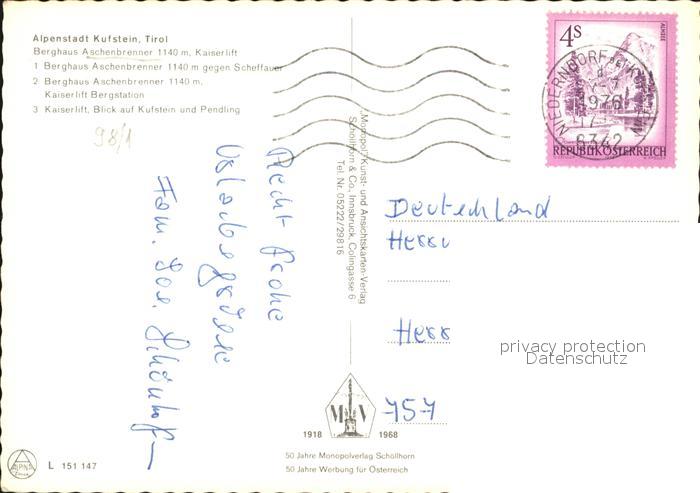 Alpenstadt Kufstein, Tirol
Berghaus Aschenbrenner 1140 m, Kaiserlift
1 Berghaus Aschenbrenner 1140 m gegen Scheffauer
2 Berghaus Aschenbrenner 1140 m,
Kaiserlift Bergstation
3 Kaiserlift, Blick auf Kufstein und Pendling
98/1
Recht frohe
Urlaubsgrüße
Fam. Jos.
"Monopol" Kunst- und Ansichtskarten-Verlag
Schöllhorn & Co., Innsbruck, Colingasse 6
Tel. Nr. 05222/29816
4S
ALMSEE
REPUBLIK ÖSTERREICH
NIEDERNDORF
1976
6342
Deutschland
Herrn
Herr
757
privacy protection
Datenschutz
M V
1918 1968
50 Jahre Monopolverlag Schöllhorn
50 Jahre Werbung für Österreich
L 151 147